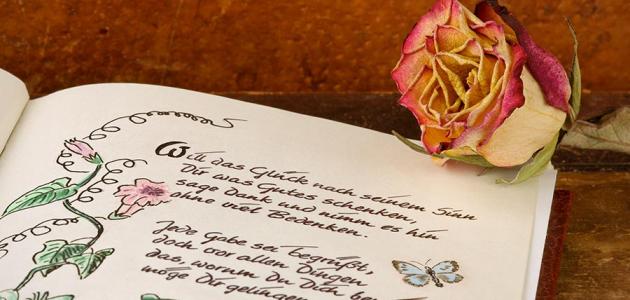 Will das Glück nach seinem Sinn
Dir was Gutes schenken,
sage Dank und nimm es hin
ohne viel Bedenken.
Jede Gabe sei begrüßt,
doch vor allen Dingen
das, worum Du Dich
möge Dir gelingen